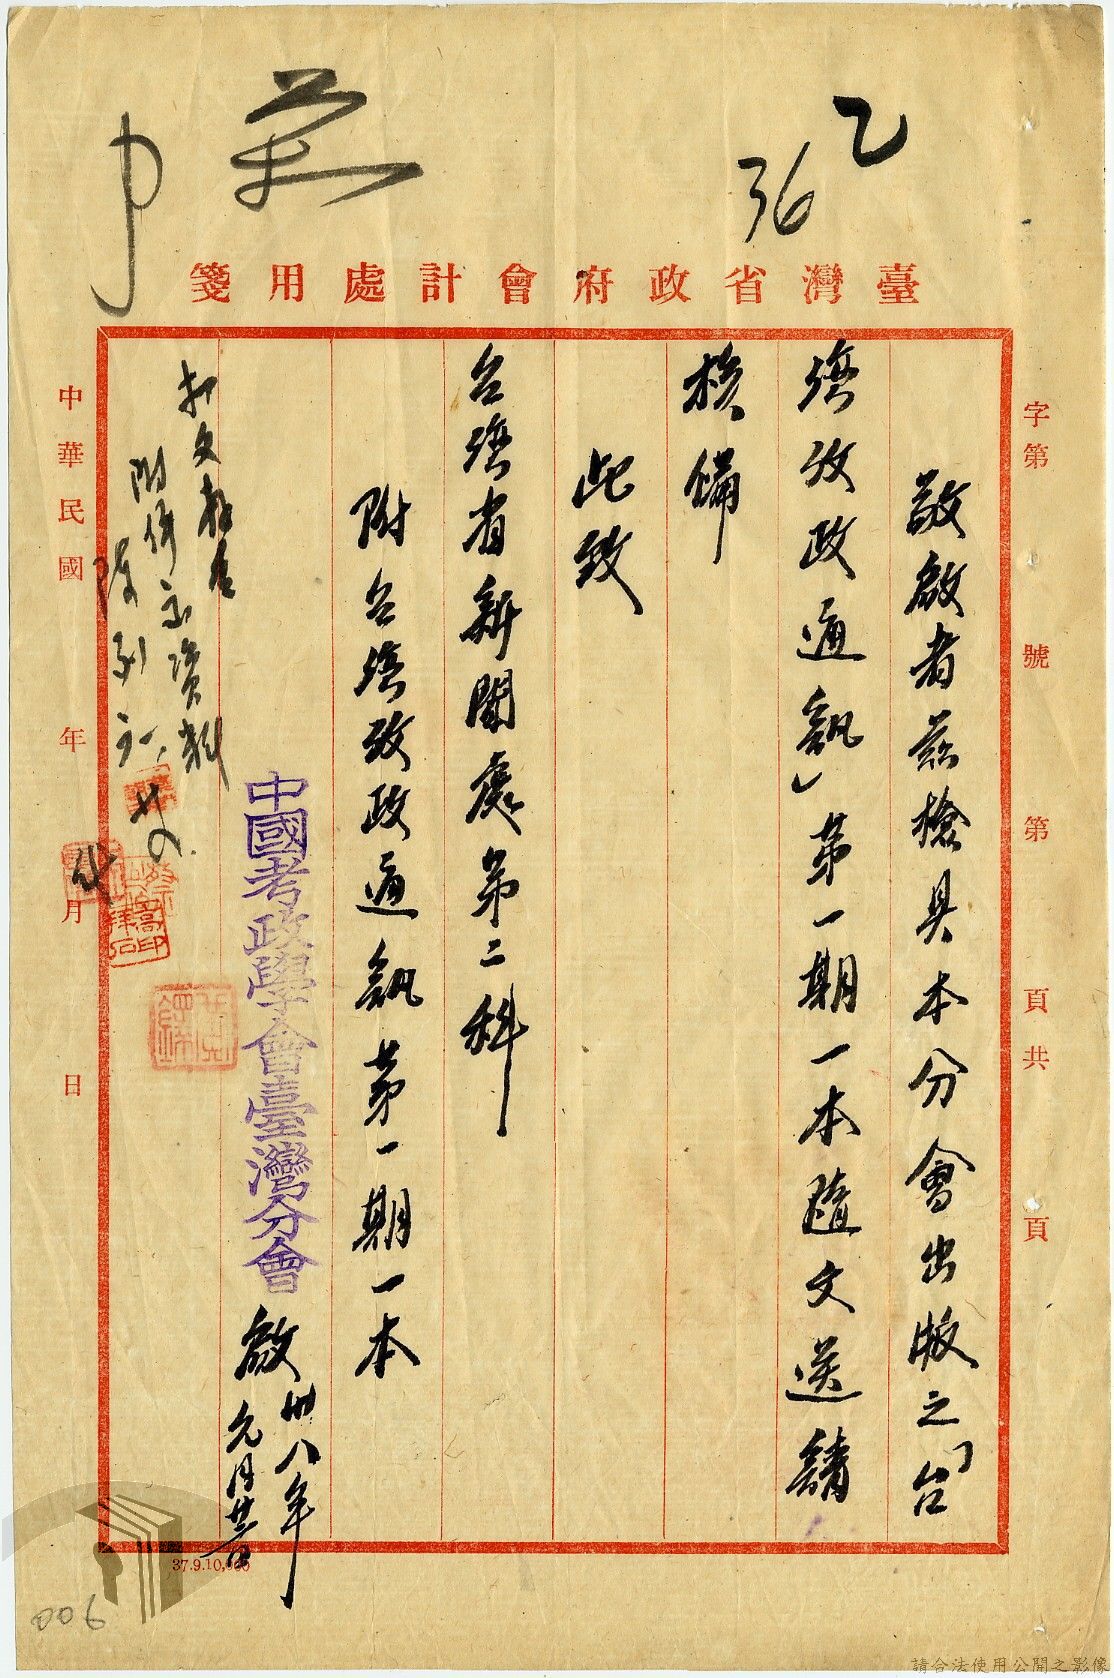 乙
36
臺灣省政府會計處用箋
字第 號 第 頁共 頁
敬啟者茲檢具本分會出版之「台
灣攷政通訊」第一期一本隨文送請
核備
此致
台灣省新聞處第二科
附台灣攷政通訊第一期一本
中國考政學會臺灣分會啟
卅八年
元月廿二日
附件 資料
中華民國 年 月 日
37.9.10,000
006
請合法使用公開之影像